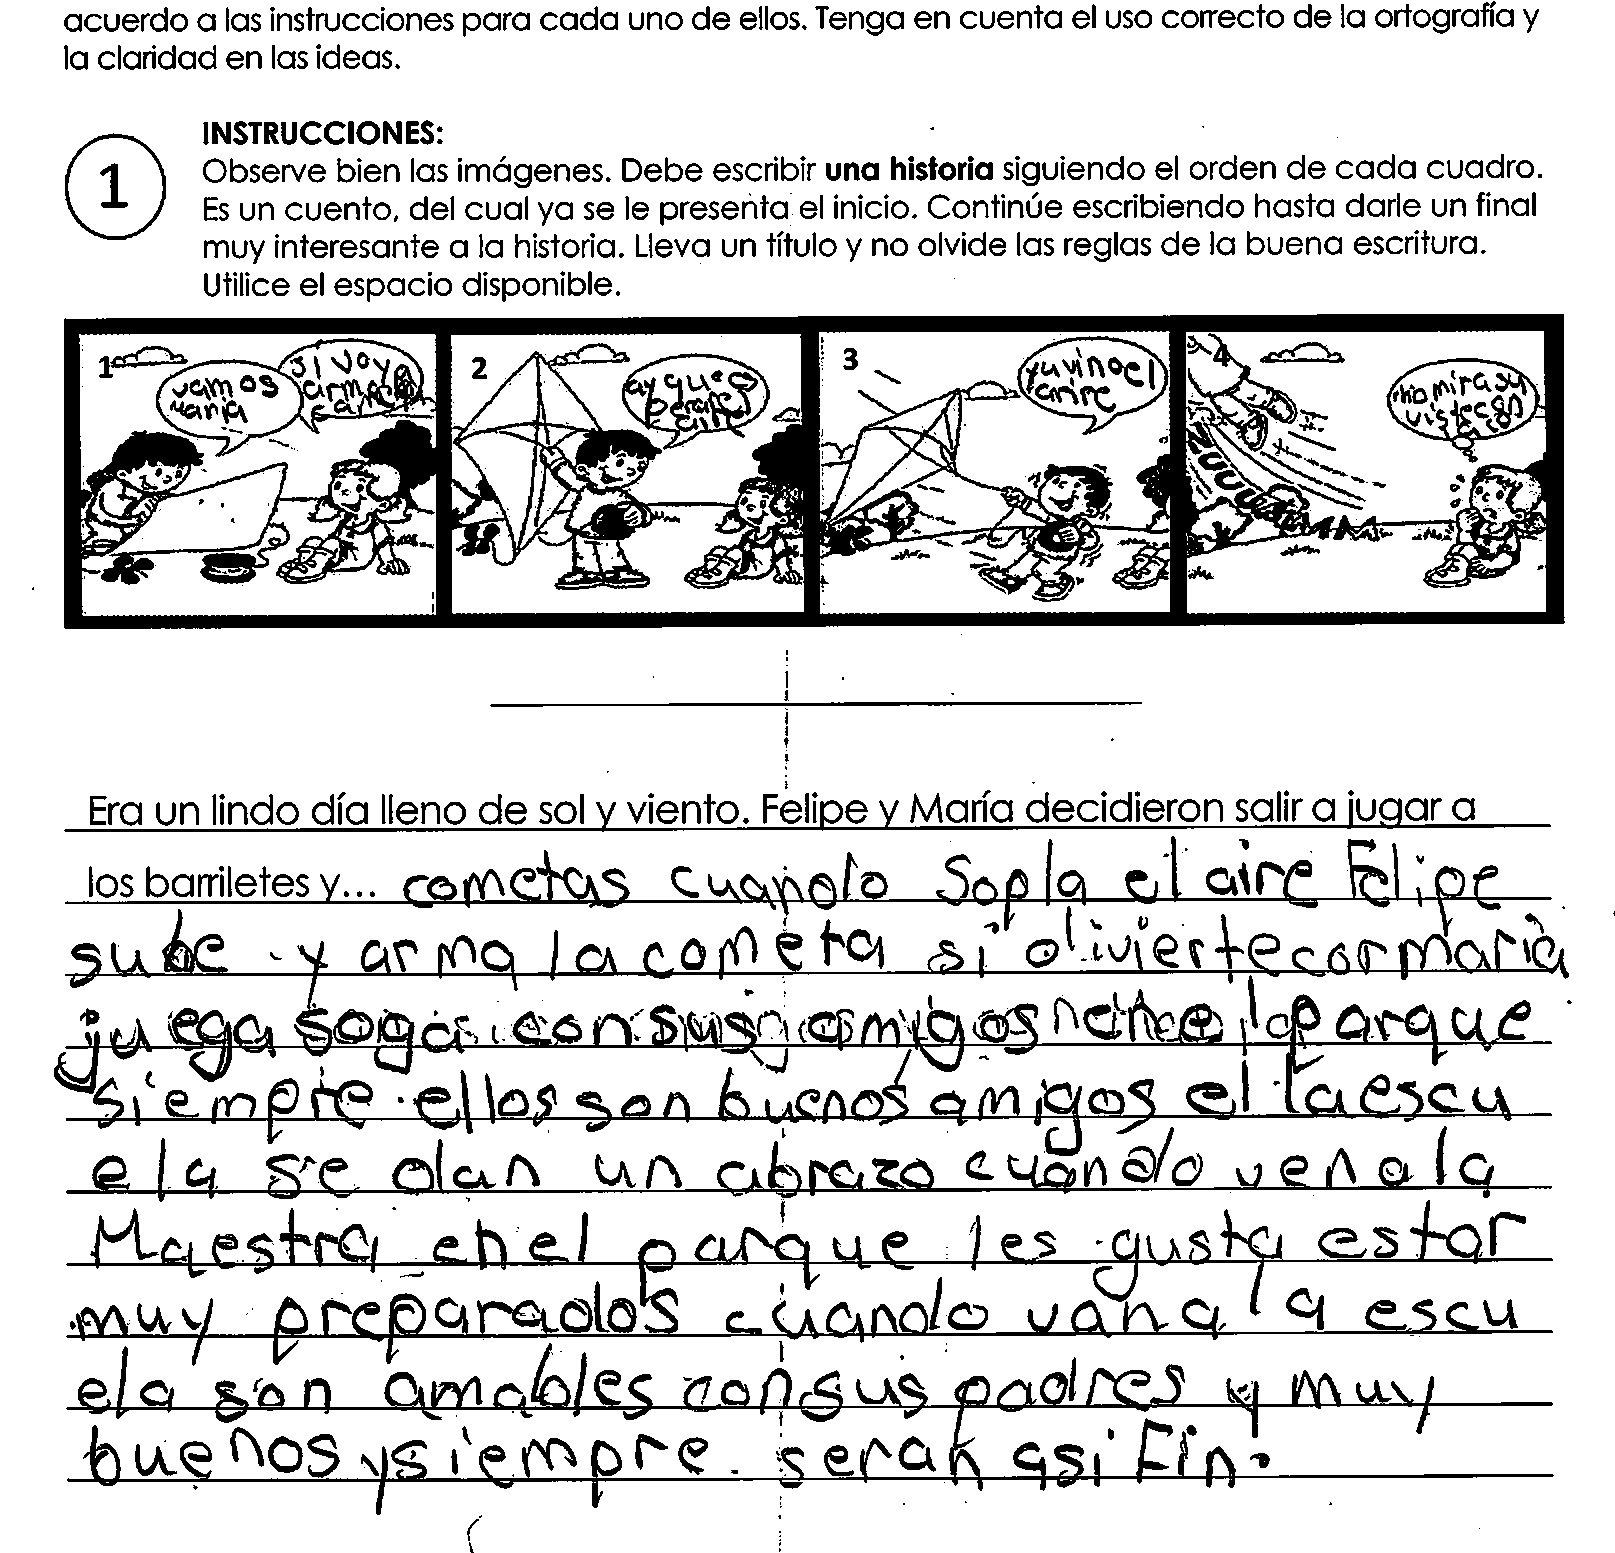 acuerdo a las instrucciones para cada uno de ellos. Tenga en cuenta el uso correcto de la ortografía y
la claridad en las ideas.
1
INSTRUCCIONES:
Observe bien las imágenes. Debe escribir una historia siguiendo el orden de cada cuadro.
Es un cuento, del cual ya se le presenta el inicio. Continúe escribiendo hasta darle un final
muy interesante a la historia. Lleva un título y no olvide las reglas de la buena escritura.
Utilice el espacio disponible.
1
vamos
maria
si voy a
2
ay que es
3
ya vino el
anire
4
mira su
ZUUUUMMM
Era un lindo día lleno de sol y viento. Felipe y María decidieron salir a jugar a
los barriletes y... cometas cuando sopla el aire Felipe
sube y arma la cometa si diviertecormaria
juega soga con sus amigos parque
siempre ellos son buenos amigos el la escu
ela se dan un abrazo cuando ven a la
Maestra en el parque les gusta estar
muy preparados cuando van a la escu
ela son amables con sus padres y muy
buenos y siempre seran asi Fin.